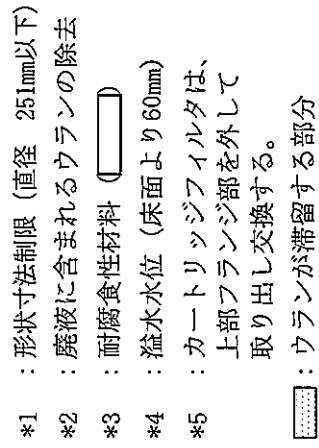 *1 ：形状寸法制限（直径 251mm以下）
*2 ：廃液に含まれるウランの除去
*3 ：耐腐食性材料（　　　）
*4 ：溢水水位（床面より60mm）
*5 ：カートリッジフィルタは、
上部フランジ部を外して
取り出し交換する。
：ウランが滞留する部分